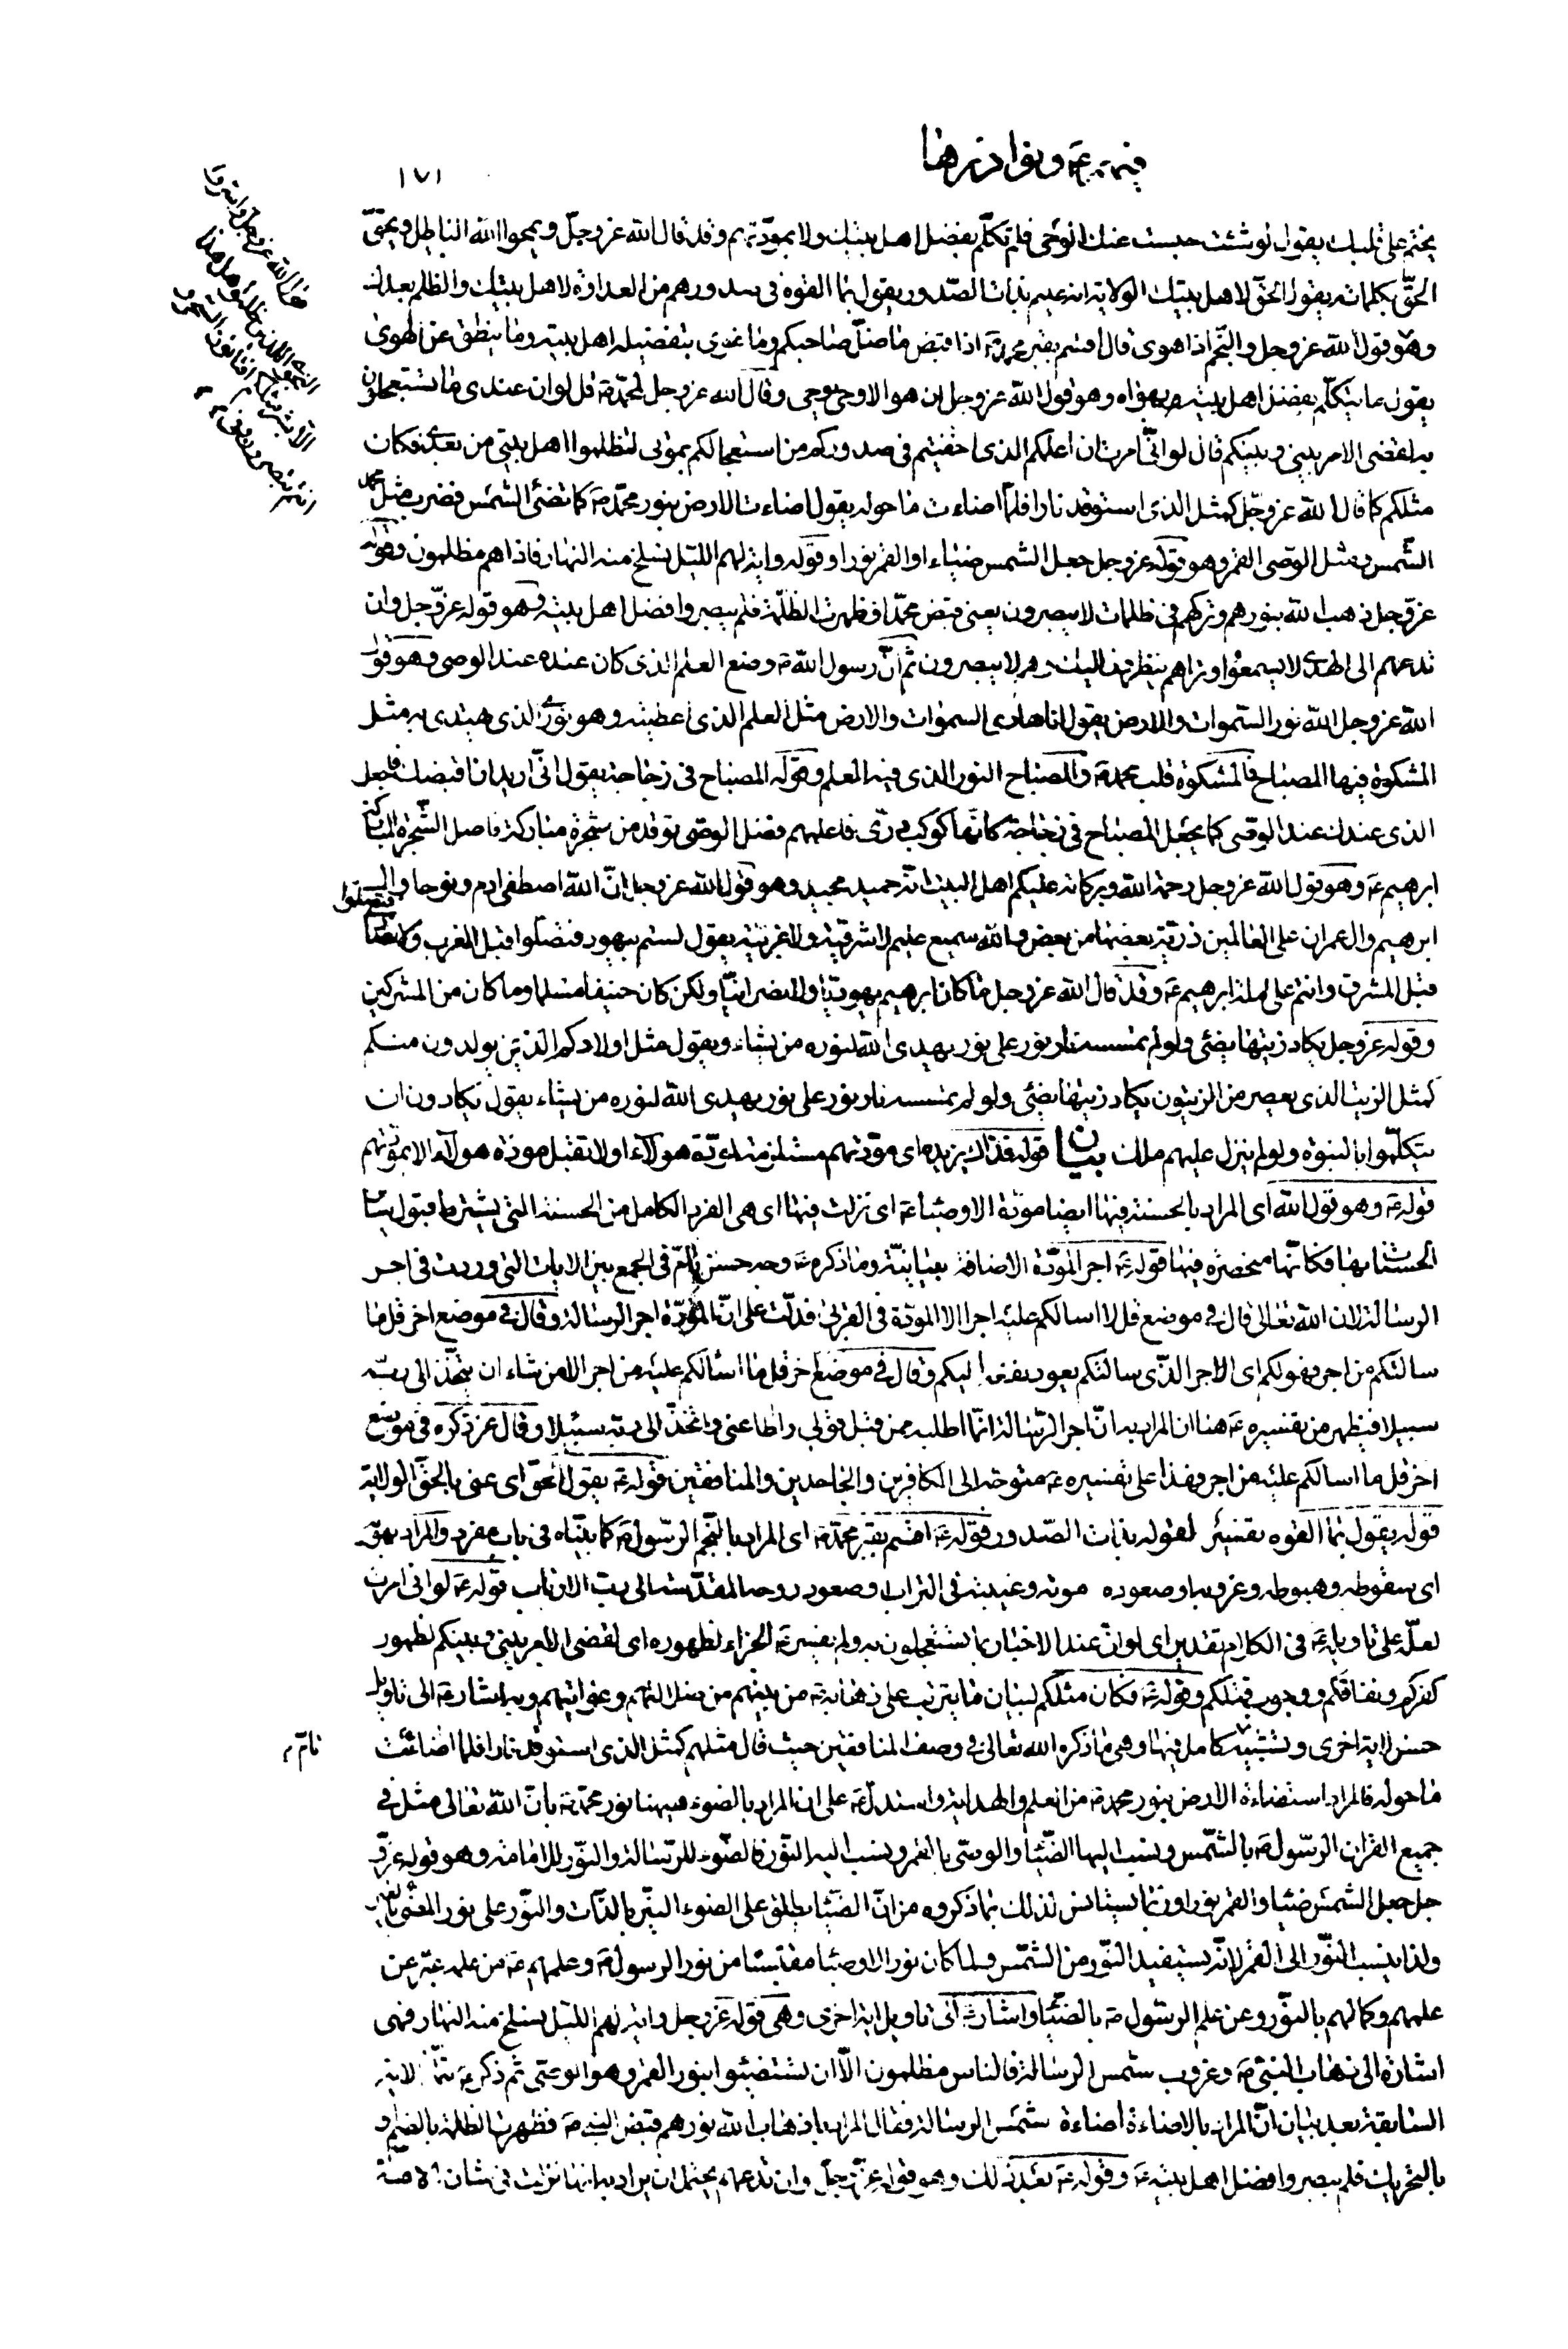 ١٧١
يختم على قلبك يقول لو شئت حبست عنك الوحى فلم تكلّم بفضل اهل بيتك ولا بمودّتهم وقد قال الله عز وجلّ ويمحوا الله الباطل ويحقّ
الحقّ بكلماته يقول الحقّ لاهل بيتك الولاية انه عليم بذات الصّدور يقول بما القوه فى صدورهم من العداوة لاهل بيتك والظلم بعدك
وهو قول الله عز وجل والنّجم اذا هوى قال اقسم بقبر محمد ص اذا قبض ما ضلّ صاحبكم وما غوى بتفضيله اهل بيته وما ينطق عن الهوى
يقول ما يتكلّم بفضل اهل بيته بهواه وهو قول الله عز وجل ان هو الا وحى يوحى وقال الله عز وجل لمحمّد ص قل لو ان عندى ما تستعجلون
به لقضى الامر بينى وبينكم قال لو انّى امرت ان اعلمكم الذى اخفيتم فى صدوركم من استعجالكم بموتى لتظلموا اهل بيتى من بعدى فكان
مثلكم كما قال الله عز وجّل كمثل الذى استوقد نارا فلمّا اضاءت ما حوله يقول اضاءت الارض بنور محمّد ص كما تضئ الشمس فضرب مثل محمد
الشّمس ومثل الوصى القمر وهو قوله عز وجل جعل الشمس ضياءا والقمر نورا وقوله واية لهم الليل نسلخ منه النهار فاذا هم مظلمون وقوله
عز وجل ذهب الله بنورهم وتركهم فى ظلمات لا يبصرون يعنى قبض محمّد ص فظهرت الظّلمة فلم يبصروا فضل اهل بيته وهو قوله عزّ وجل وان
تدعهم الى الهدى لا يسمعوا وتراهم ينظرون اليك وهم لا يبصرون ثم انّ رسول الله ص وضع العلم الذى كان عنده عند الوصى وهو قول
الله عز وجل الله نور السّموات والارض يقول انا هادى السموات والارض مثل العلم الذى اعطيته وهو نورى الذى يهتدى به مثل
المشكوة فيها المصباح فالمشكوة قلب محمد ص والمصباح النور الذى فيه العلم وقوله المصباح فى زجاجة يقول انّى اريد ان اقبضك فاجعل
الذى عندك عند الوصى كما يجعل المصباح فى زجاجة كانّها كوكب درّى فاعلمهم فضل الوصى توقد من شجرة مباركة فاصل الشّجرة المباركة
ابرهيم ع وهو قول الله عز وجل رحمة الله وبركاته عليكم اهل البيت انّه حميد مجيد وهو قول الله عز وجل انّ الله اصطفى ادم ونوحا وال
ابرهيم وال عمران على العالمين ذريّة بعضها من بعض والله سميع عليم لا شرقيّة ولا غربيّة يقول لستم بيهود فتصلّوا قبل المغرب ولا نصارى
فتصلوا
قبل المشرق وانتم على ملة ابرهيم ع وقد قال الله عز وجل ما كان ابرهيم يهوديّا ولا نصرانيّا ولكن كان حنيفا مسلما وما كان من المشركين
وقوله عز وجل يكاد زيتها يضئ ولو لم تمسسه نار نور على نور يهدى الله لنوره من يشاء ويقول مثل اولادكم الذين يولدون منكم
كمثل الزيت الذى يعصر من الزيتون يكاد زيتها يضئ ولو لم تمسسه نار نور على نور يهدى الله لنوره من يشاء يقول يكادون ان
يتكلّموا بالنبوة ولو لم ينزل عليهم ملك بيان
قوله ع وهو قول الله اى المراد بالحسنة فيها ايضا مودّة الاوصياء ع اى نزلت فيها اى هى الفرد الكامل من الحسنة التى يشترط قبول ساير
الحسنات بها فكانّها منحصرة فيها قوله ع اجر المودّة الاضافة بيانيّة وما ذكره ع وجه حسن تامّ فى الجمع بين الايات التى وردت فى اجر
الرسالة لان الله تعالى قال فى موضع قل لا اسالكم عليه اجرا الا المودّة فى القربى فدلّت على انّ المودّة اجر الرسالة وقال فى موضع اخر قل ما
سالتكم من اجر فهو لكم اى الاجر الذّى سالتكم يعود نفعه اليكم وقال فى موضع اخر قل ما اسألكم عليه من اجر الا من شاء ان يتّخذ الى ربّه
سبيلا فيظهر من تفسيره ع هنا ان المراد به انّ اجر الرّسالة انّما اطلبه ممن قبل قولى واطاعنى واتّخذ الى ربّه سبيلا وقال عز ذكره فى موضع
اخر قل ما اسالكم عليه من اجر وهذا على تفسيره ع متوجّه الى الكافرين والجاحدين والمنافقين قوله ع يقول الحقّ اى عنى بالحقّ الولاية
قوله يقول بما القوه تفسير لقوله بذات الصّدور قوله ع اقسم بقبر محمّد ص اى المراد بالنّجم الرّسول ص كما بيّناه فى باب مفرد والمراد بهويّه
اى سقوطه وهبوطه وغروبه او صعوده موته وغيبته فى التراب وصعود روحه المقدّسة الى ربّ الارباب قوله ع لو انى امرت
لعلّه على تاويله ع فى الكلام تقدير اى لو انّ عندى الاخبار بما تستعجلون به ولم يفسر ع الجزاء لظهوره اى لقضى الامر بينى وبينكم لظهور
كفركم ونفاقكم ووجوب قتلكم وقوله ع فكان مثلكم لبيان ما يترتب على ذهابه ص من بينهم من ضلالتهم وغوايتهم وبه اشار ع الى تاويل
حسن لاية اخرى وتشبيه كامل فيها وهى ما ذكره الله تعالى فى وصف المنافقين حيث قال مثلهم كمثل الذى استوقد نارا فلما اضائت
تامّ
ما حوله فالمراد استضاءة الارض بنور محمد ص من العلم والهداية واستدلّ ع على ان المراد بالضوء هيهنا نور محمّد ص بانّ الله تعالى مثل فى
جميع القران الرّسول ص بالشّمس ونسب اليها الضّيا والوصّى بالقمر ونسب اليه النّور فالضّوء للرّسالة والنّور للامامة وهو قوله عزّ و
جل جعل الشمس ضيا والقمر نورا وربما يستانس لذلك بما ذكروه من انّ الضّيا يطلق على الضوء النيّر بالذّات والنّور على نور المضئ بالغير
ولذا ينسب النّور الى القمر لانّه يستفيد النّور من الشّمس ولما كان نور الاوصيا مقتبسا من نور الرسول ص وعلمهم ع من علمه عبّر عن
علمهم وكمالهم بالنّور وعن علم الرسول ص بالضيّا واشار ع الى تاويل اية اخرى وهى قوله عز وجل واية لهم الليل نسلخ منه النهار فهى
اشارة الى ذهاب النبى ص وغروب شمس الرسالة فالناس مظلمون الّا ان يستضيئوا بنور القمر وهو الوصى ثم ذكر ع تتمّة الاية
السّابقة بعد بيان انّ المراد بالاضاءة اضاءة شمس الرسالة فقال المراد باذهاب الله نورهم قبض النبى ص فظهرت الظلمة بالضم و
بالتحريك فلم يبصروا فضل اهل بيته ع وقوله ع بعد ذلك وهو قوله عزّ وجلّ وان تدعهم يحتمل ان يراد به انها نزلت فى شان الامّة